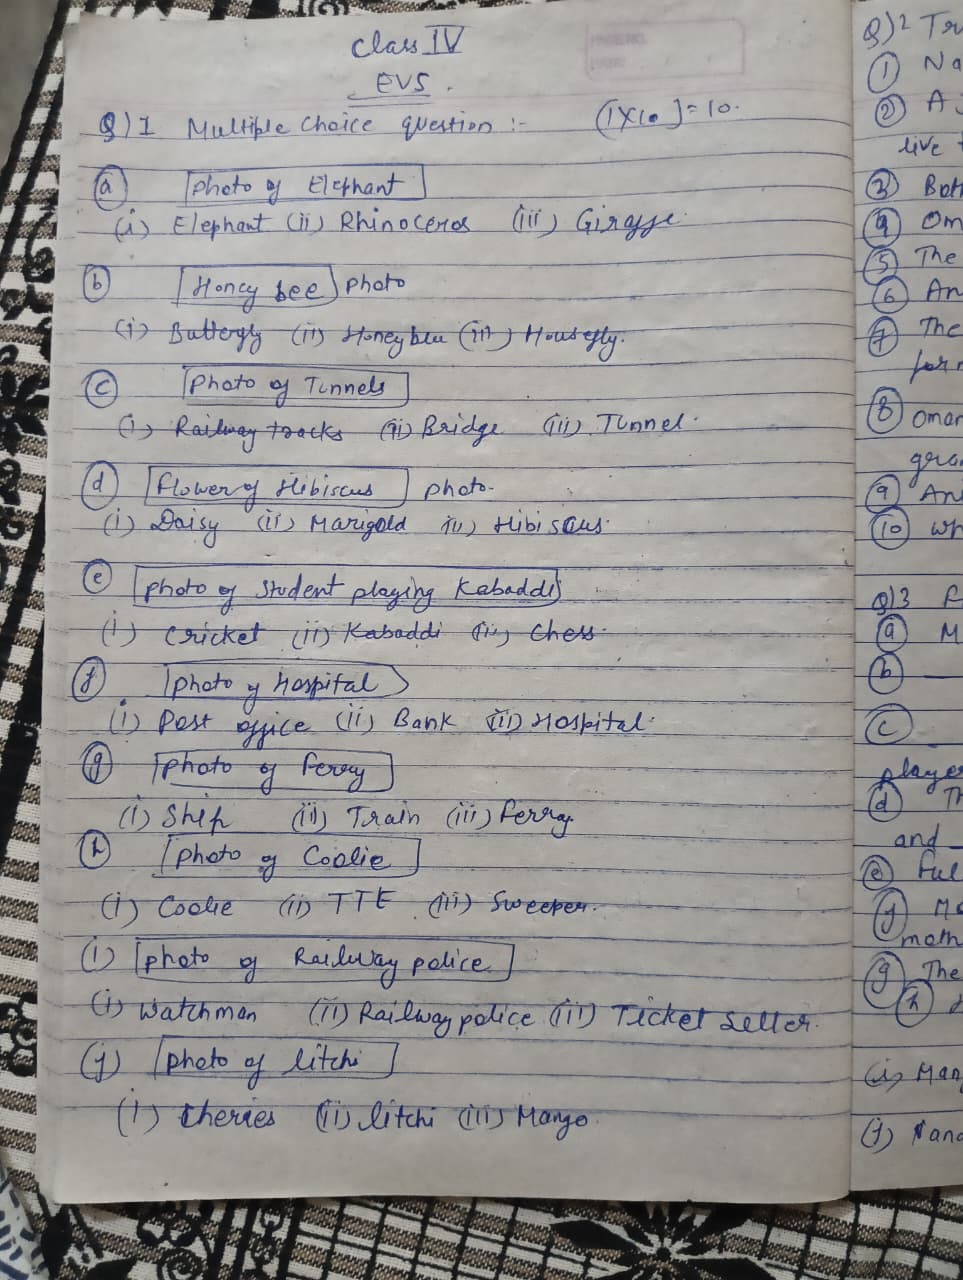 Class IV
EVS.
Q)1 Multiple Choice question :- (1x10)=10.
(a) Photo of Elephant
(i) Elephant (ii) Rhinoceros (iii) Giraffe.
(b) Honey bee photo
(i) Butterfly (ii) Honeybee (iii) Housefly.
(c) Photo of Tunnels
(i) Railway tracks (ii) Bridge (iii) Tunnel.
(d) Flower of Hibiscus photo.
(i) Daisy (ii) Marigold (iii) Hibiscus.
(e) photo of student playing Kabaddi
(i) Cricket (ii) Kabaddi (iii) Chess.
(f) photo of Hospital
(i) Post office (ii) Bank (iii) Hospital.
(g) photo of ferry
(i) Ship (ii) Train (iii) ferry
(h) photo of Coolie
(i) Coolie (ii) TTE (iii) Sweeper.
(i) photo of Railway police
(i) Watchman (ii) Railway police (iii) Ticket seller.
(j) photo of litchi
(i) Cheries (ii) litchi (iii) Mango.
Q)2
(1)
(2) A
live
(3)
(4)
(5) The
(6)
(7) The
(8)
(9)
(10)
Q)3
(a)
(b)
(c)
(d)
and
(e)
(f)
(g) The
(h)
(i)
(j)